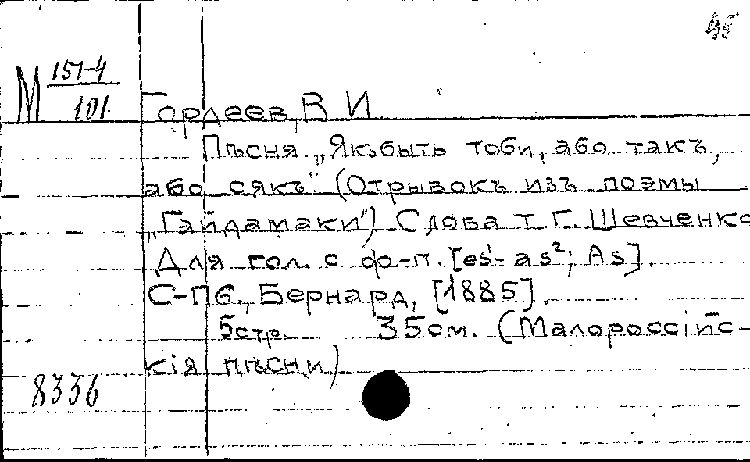 М 151-4
101
Гордеев, В И
Пѣсня „Як-быть тоби, або такъ,
або сякъ" (Отрывокъ изъ поэмы
„Гайдамаки") Слова Т. Г. Шевченко
Для гол. с ф-п. [es¹-as²; As].
С-Пб., Бернард, [1885].
5стр. 35см. (Малороссійс-
кія пѣсни)
8336